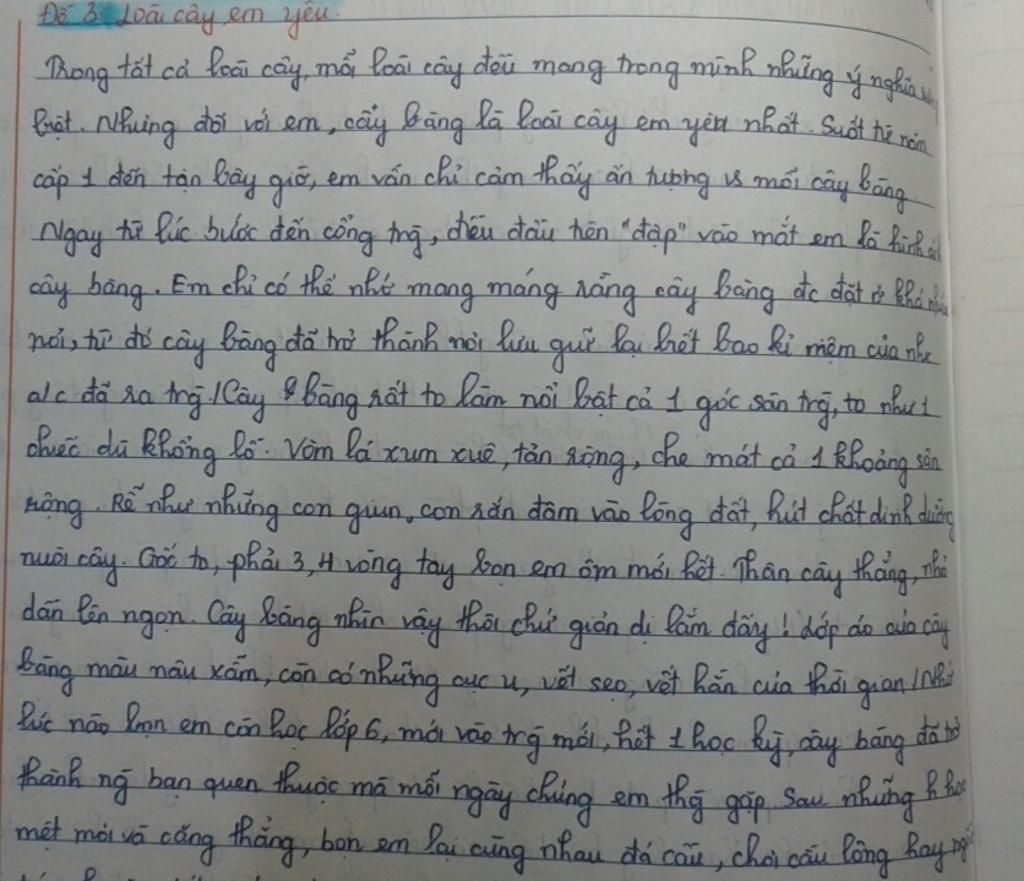 Đề 3: Loài cây em yêu.
Trong tất cả loài cây, mỗi loài cây đều mang trong mình những ý nghĩa
biệt. Nhưng đối với em, cây bàng là loài cây em yêu nhất. Suốt từ năm
cấp 1 đến tận bây giờ, em vẫn chỉ cảm thấy ấn tượng vs mỗi cây bàng.
Ngay từ lúc bước đến cổng trg, điều đầu tiên "đập" vào mắt em là hình
cây bàng. Em chỉ có thể nhớ mang máng rằng cây bàng đc đặt ở khá
nơi, từ đó cây bàng đã trở thành nơi lưu giữ lại hết bao kỉ niệm của
a/c đã ra trg. / Cây bàng rất to làm nổi bật cả 1 góc sân trg, to như 1
chiếc dù khổng lồ. Vòm lá xum xuê, tán rộng, che mát cả 1 khoảng sân
rộng. Rễ như những con giun, con rắn đâm vào lòng đất, hút chất dinh dưỡng
nuôi cây. Gốc to, phải 3, 4 vòng tay bọn em ôm mới hết. Thân cây thẳng, nhỏ
dần lên ngọn. Cây bàng nhìn vậy thôi chứ giản dị lắm đấy! Lớp áo của cây
bàng màu nâu xám, còn có những cục u, vết sẹo, vết hằn của thời gian / Nhớ
lúc nào bọn em còn học lớp 6, mới vào trg mới, hết 1 học kỳ, cây bàng đã trở
thành ng bạn quen thuộc mà mỗi ngày chúng em thg gặp. Sau những h học
mệt mỏi và căng thẳng, bọn em lại cùng nhau đá cầu, chơi cầu lông hay